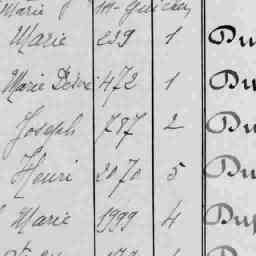 Marie
Marie 259 1 Du
Marie Désiré 472 1 Du
Joseph 787 2 Du
Henri 2070 5 Du
Marie 1999 4 Dup